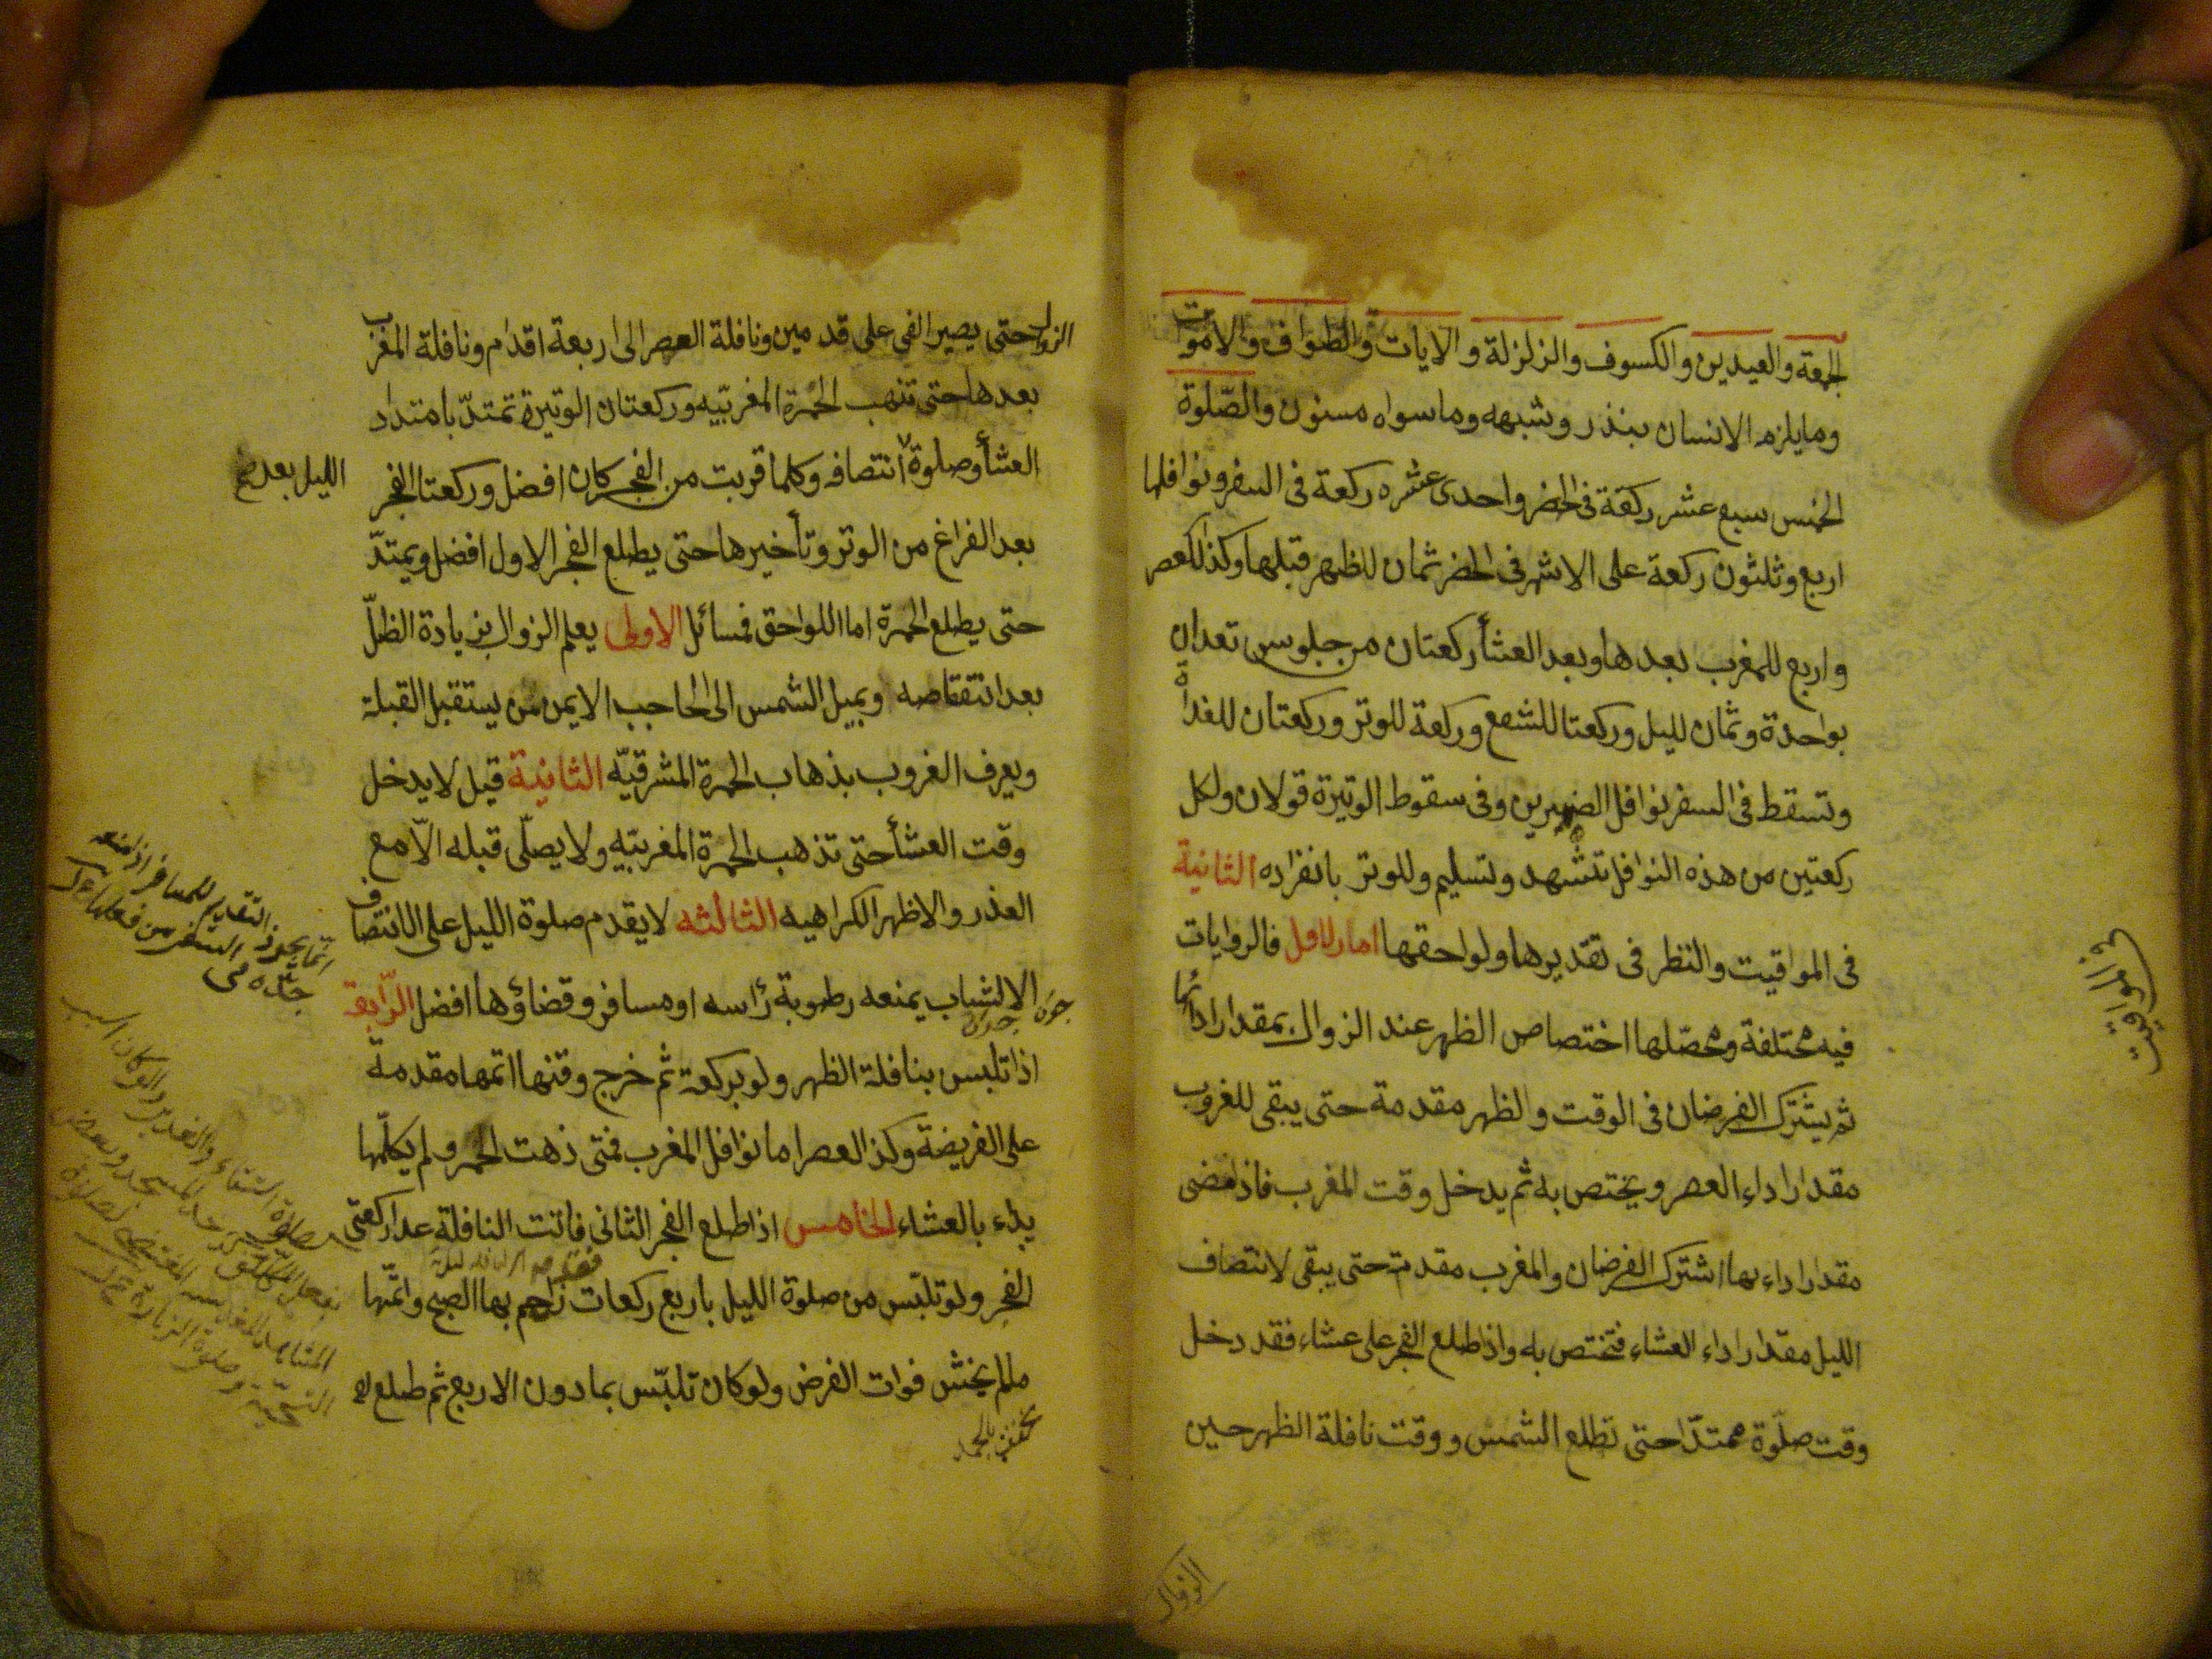 الجمعة والعيدين والكسوف والزلزلة والايات والطواف والاموت
ومايلزمه الانسان بنذر وشبهه وماسواه مسنون والصّلوة
الخمس سبع عشر ركعة فى الحضر واحدى عشره ركعة فى السفر ونوافلها
اربع وثلثون ركعة على الاشهر فى الحضر ثمان للظهر قبلها وكذا لعصر
واربع للمغرب بعدها وبعد العشأ ركعتان من جلوس تعدان
بواحدة وثمان لليل وركعتا للشفع وركعة للوتر وركعتان للغداة
وتسقط فى السفر نوافل الضهرين وفى سقوط الوتيرة قولان ولكل
ركعتين من هذه النوافل تشهد وتسليم وللوتر بانفراده الثانية
فى المواقيت والنظر فى تقديرها ولواحقها اما الاول فالروايات
فيه مختلفة ومحصّلها اختصاص الظهر عند الزوال بمقدار ادائها
ثم يشترك الفرضان فى الوقت والظهر مقدمة حتى يبقى للغروب
مقدار اداء العصر ويختص به ثم يدخل وقت المغرب فاذا مضى
مقدار اداءها اشترك الفرضان والمغرب مقدمة حتى يبقى لانتصاف
الليل مقدار اداء العشاء فتختص به واذا طلع الفجر على عشاء فقد دخل
وقت صلوة ممتدّا حتى تطلع الشمس ووقت نافلة الظهر حين
فى المواقيت
الزوال
الزوال حتى يصير الفى على قدمين ونافلة العصر الى اربعة اقدام ونافلة المغرب
بعدها حتى تذهب الحمرة المغربيّه وركعتان الوتيرة تمتدّ بامتداد
العشأ وصلوة انتصافه وكلما قربت من الفجر كان افضل وركعتا الفجر
الليل بعد
بعد الفراغ من الوتر وتأخيرها حتى يطلع الفجر الاول افضل ويمتدّ
حتى يطلع الحمرة اما اللواحق فمسائل الاولى يعلم الزوال بزيادة الظلّ
بعد انتقاصه ويميل الشمس الى الحاجب الايمن ممن يستقبل القبلة
ويعرف الغروب بذهاب الحمرة المشرقيّه الثانية قيل لا يدخل
وقت العشأ حتى تذهب الحمرة المغربيّه ولا يصلّى قبله الّا مع
العذر والاظهر الكراهيه الثالثه لا يقدم صلوة الليل على الانتصاف
الا لشباب يمنعه رطوبة رأسه او مسافر وقضاؤها افضل الرّابعة
اذا تلبس بنافلة الظهر ولو بركعة ثم خرج وقتها اتمها مقدمة
على الفريضة وكذا العصر اما نوافل المغرب فمتى ذهت الحمر ولم يكلّمها
بدء بالعشاء الخامس اذا طلع الفجر الثانى فاتت النافلة عدا ركعتى
الفجر ولو تلبّس من صلوة الليل باربع ركعات زاحم بها الصبح واتمّها
مالم يخش فوات الفرض ولو كان تلبّس بما دون الاربع ثم طلع له
انما يجوز التقديم للمسافر اذا منعه
جدّه فى السفر من فعلها